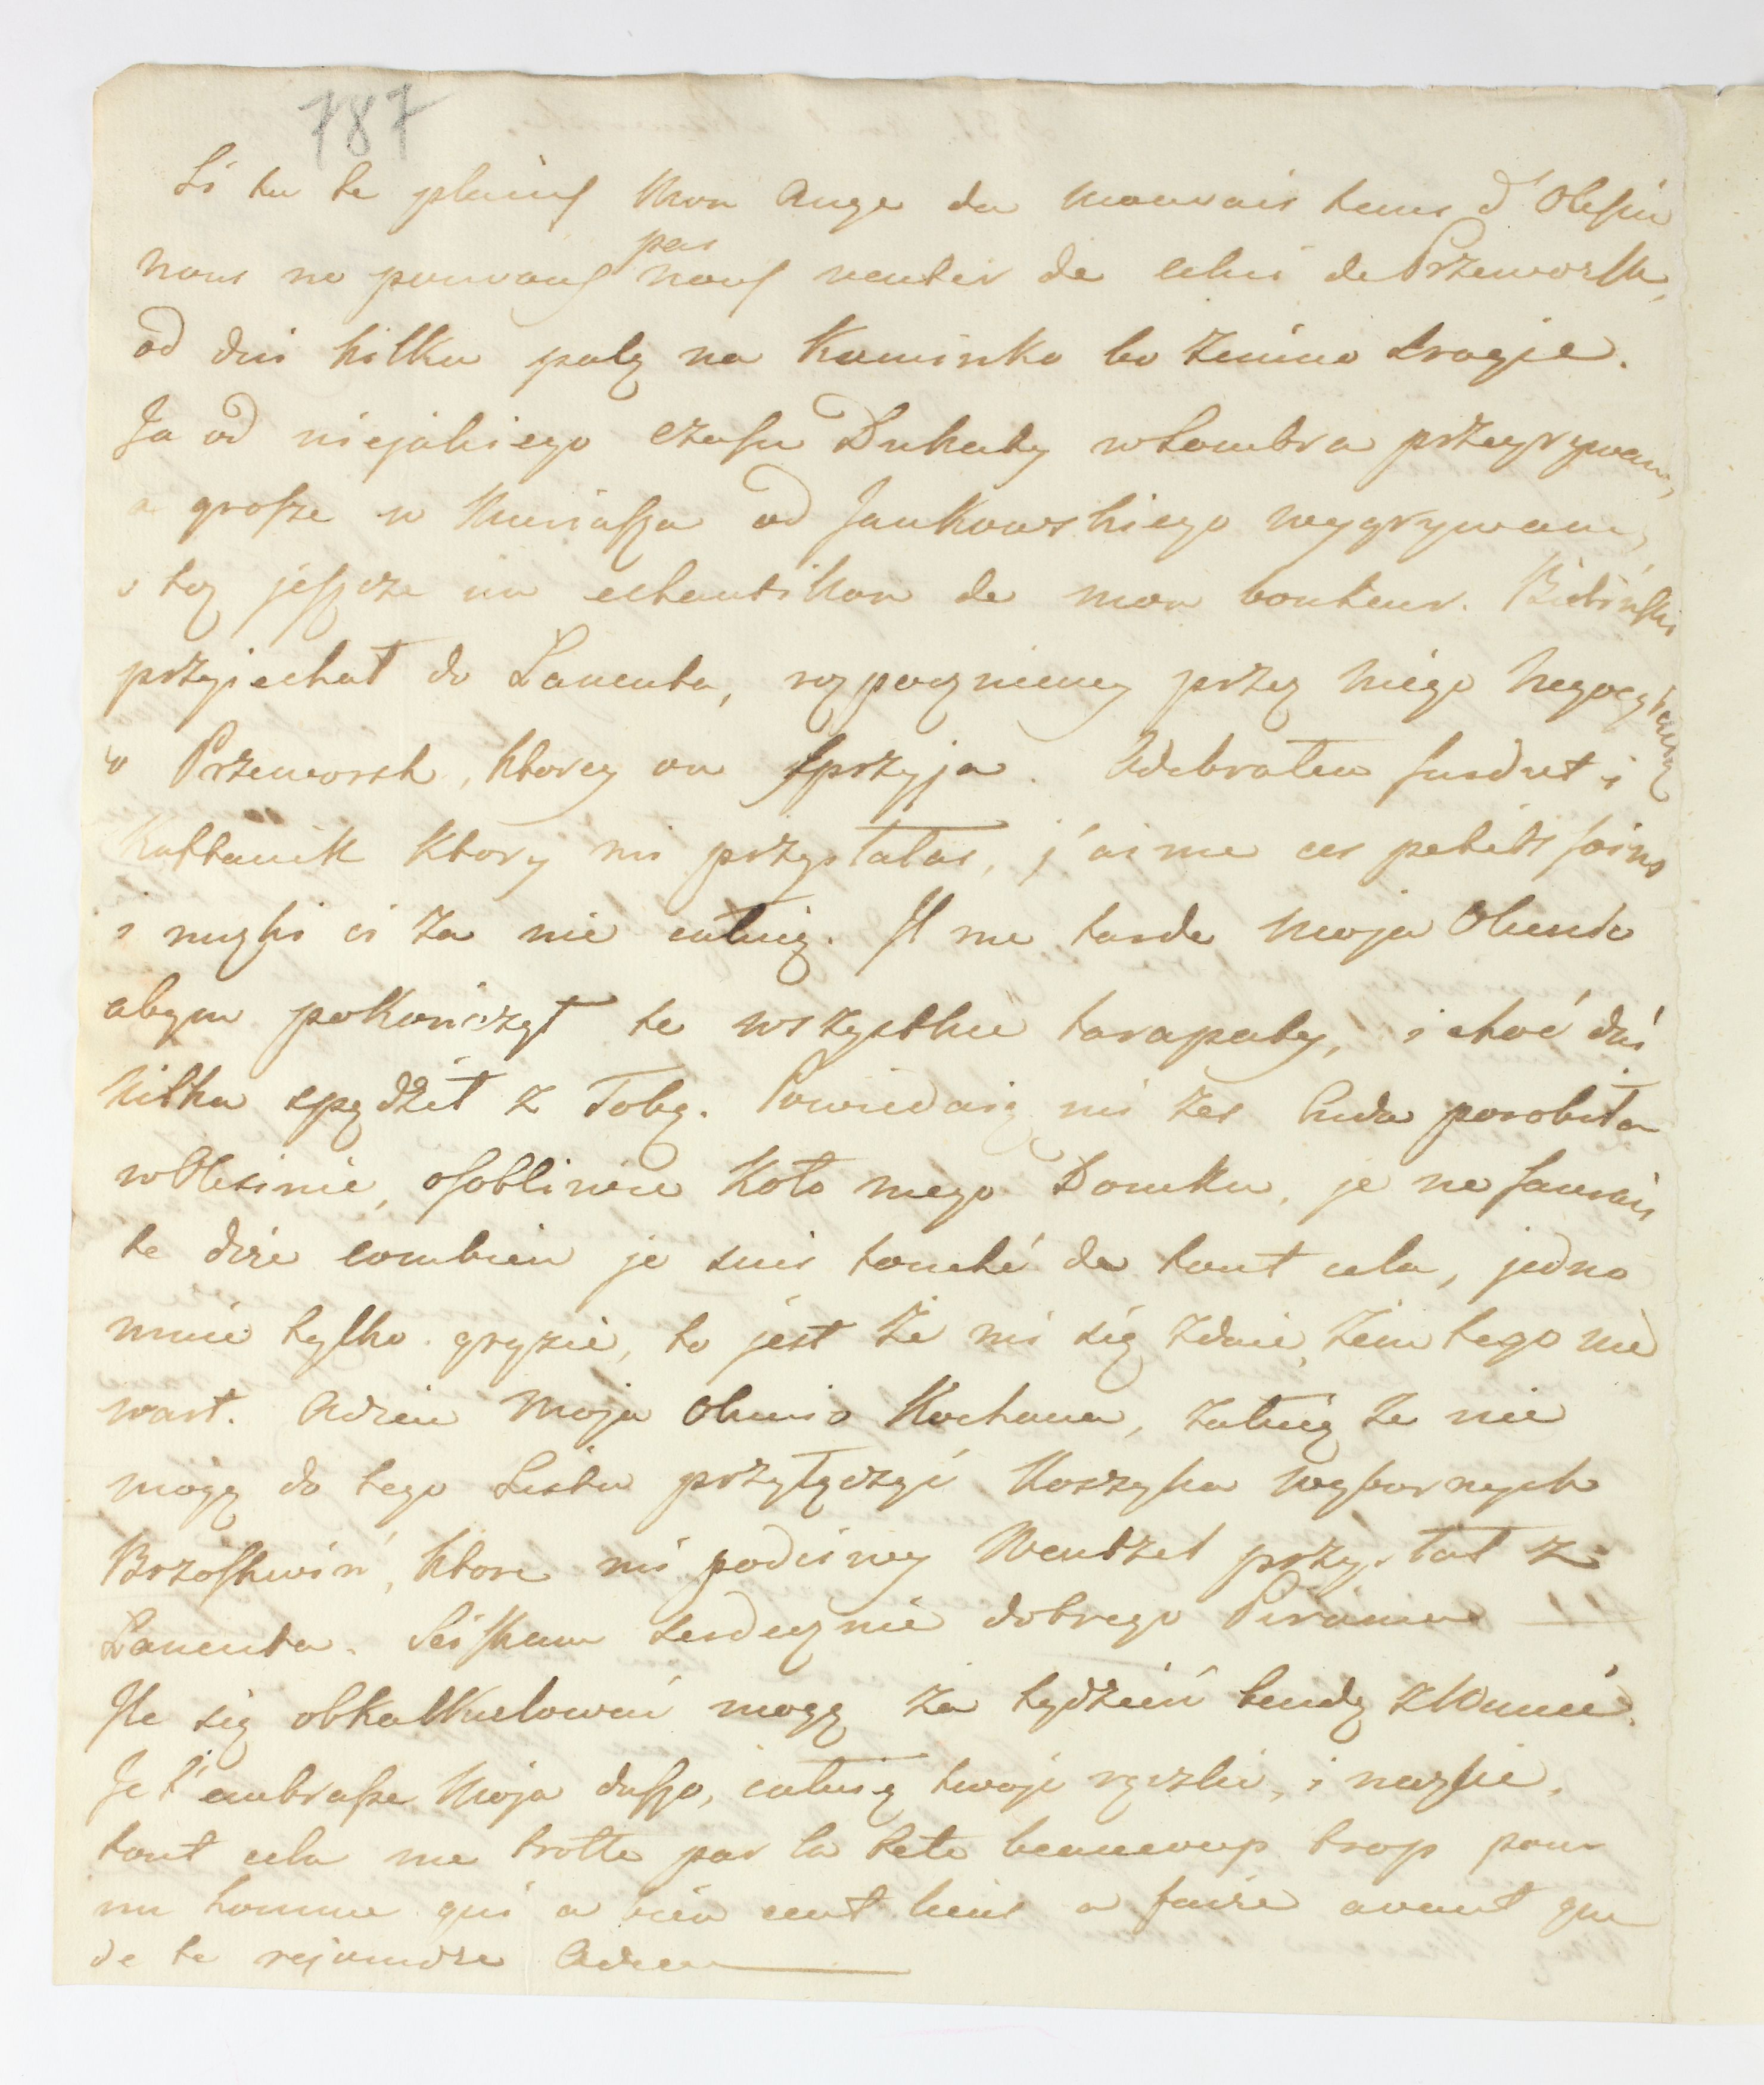 787
Si tu te plains Mon Ange du mauvais tems d'Olesin
nous ne pouvons pas nous venter de celui de Przeworsk,
od dni kilku palę na Kominku bo zimno srogie.
Ja od niejakiego czasu Dukaty w Lombra przegrywam,
a grosze w Mariasza od Jankowskiego wygrywam,
i tęz jeszcze un echantillon de mon bonheur.
przyjechał do Lancuta, rozpoczniemy przez niego negocyacyą
o Przeworsk, ktorey on sprzyja. Odebrałem surdut i
Kaftanik ktory mi przysłałas, j'aime ces petits soins
i nużki ci za nie całuię. Il me tarde moja Olusiu
abym pokończył te wszystkie tarapaty, i choć dni
kilka spędził z Tobą. Powiedaią mi żes Cuda porobiła
w Olesinie, osobliwie Koło mego Domku, je ne saurais
te dire combien je suis touché de tout cela, jedno
mnie tylko gryzie, to jest że mi się zdaie, żem tego nie
wart. Adieu Moja Olusio Kochana, żałuię że nie
mogę do tego Listu przyłączyć Koszyka wybornych
Brzoskwiń, ktore mi podciwy Wentzel przysłał z
Lancuta. Sciskam serdecznie dobrego
Ile się obkalkulować mogę za tydzień bendę z Wamie.
Je t'embrasse Moja duszo, całuię twoje rączki, i nużſie,
tout cela me trotte par la tete beaucoup trop pour
un homme qui a bien cent lieus a faire avant que
de te rejoindre Adieu